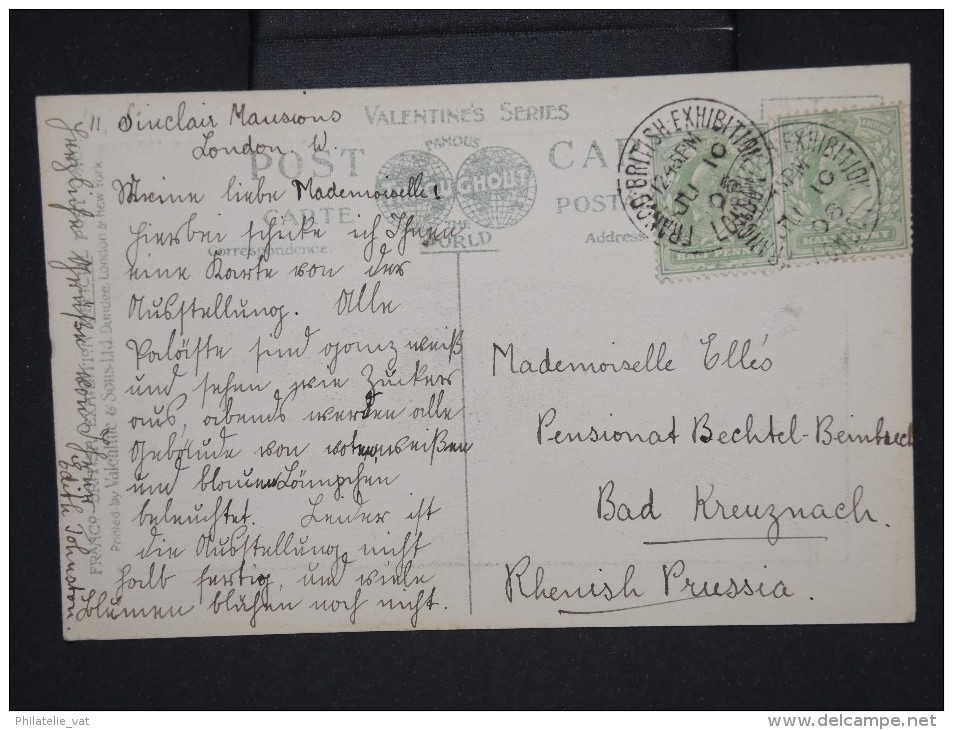 11 Sinclair Mansions
London. W.
VALENTINE'S SERIES
FAMOUS
THROUGHOUT
THE
WORLD
POST CARD
CARTE POSTALE
Correspondence.
Address
Meine liebe Mademoiselle!
Hierbei schicke ich Ihnen
eine Karte von der
Ausstellung. Alle
Paläste sind ganz weiß
und sehen, wie Zucker
aus, abends werden alle
Gebäude von roten, weißen
und blauen Lämpchen
beleuchtet. Leider ist
die Ausstellung nicht
halb fertig, und viele
Blumen blühen noch nicht.
Edith Johnston.
FRANCO-BRITISH EXHIBITION
Printed by Valentine & Sons Ltd. Dundee, London & New York.
FRANCO-BRITISH·EXHIBITION
12.45PM
JU 10
08
LONDON
HALF PENNY
EXHIBITION
JU 10
08
HALF PENNY
Mademoiselle Ellés
Pensionat Bechtel-Beinbrech
Bad Kreuznach.
Rhenish Prussia.
Philatelie_vat
www.delcampe.net